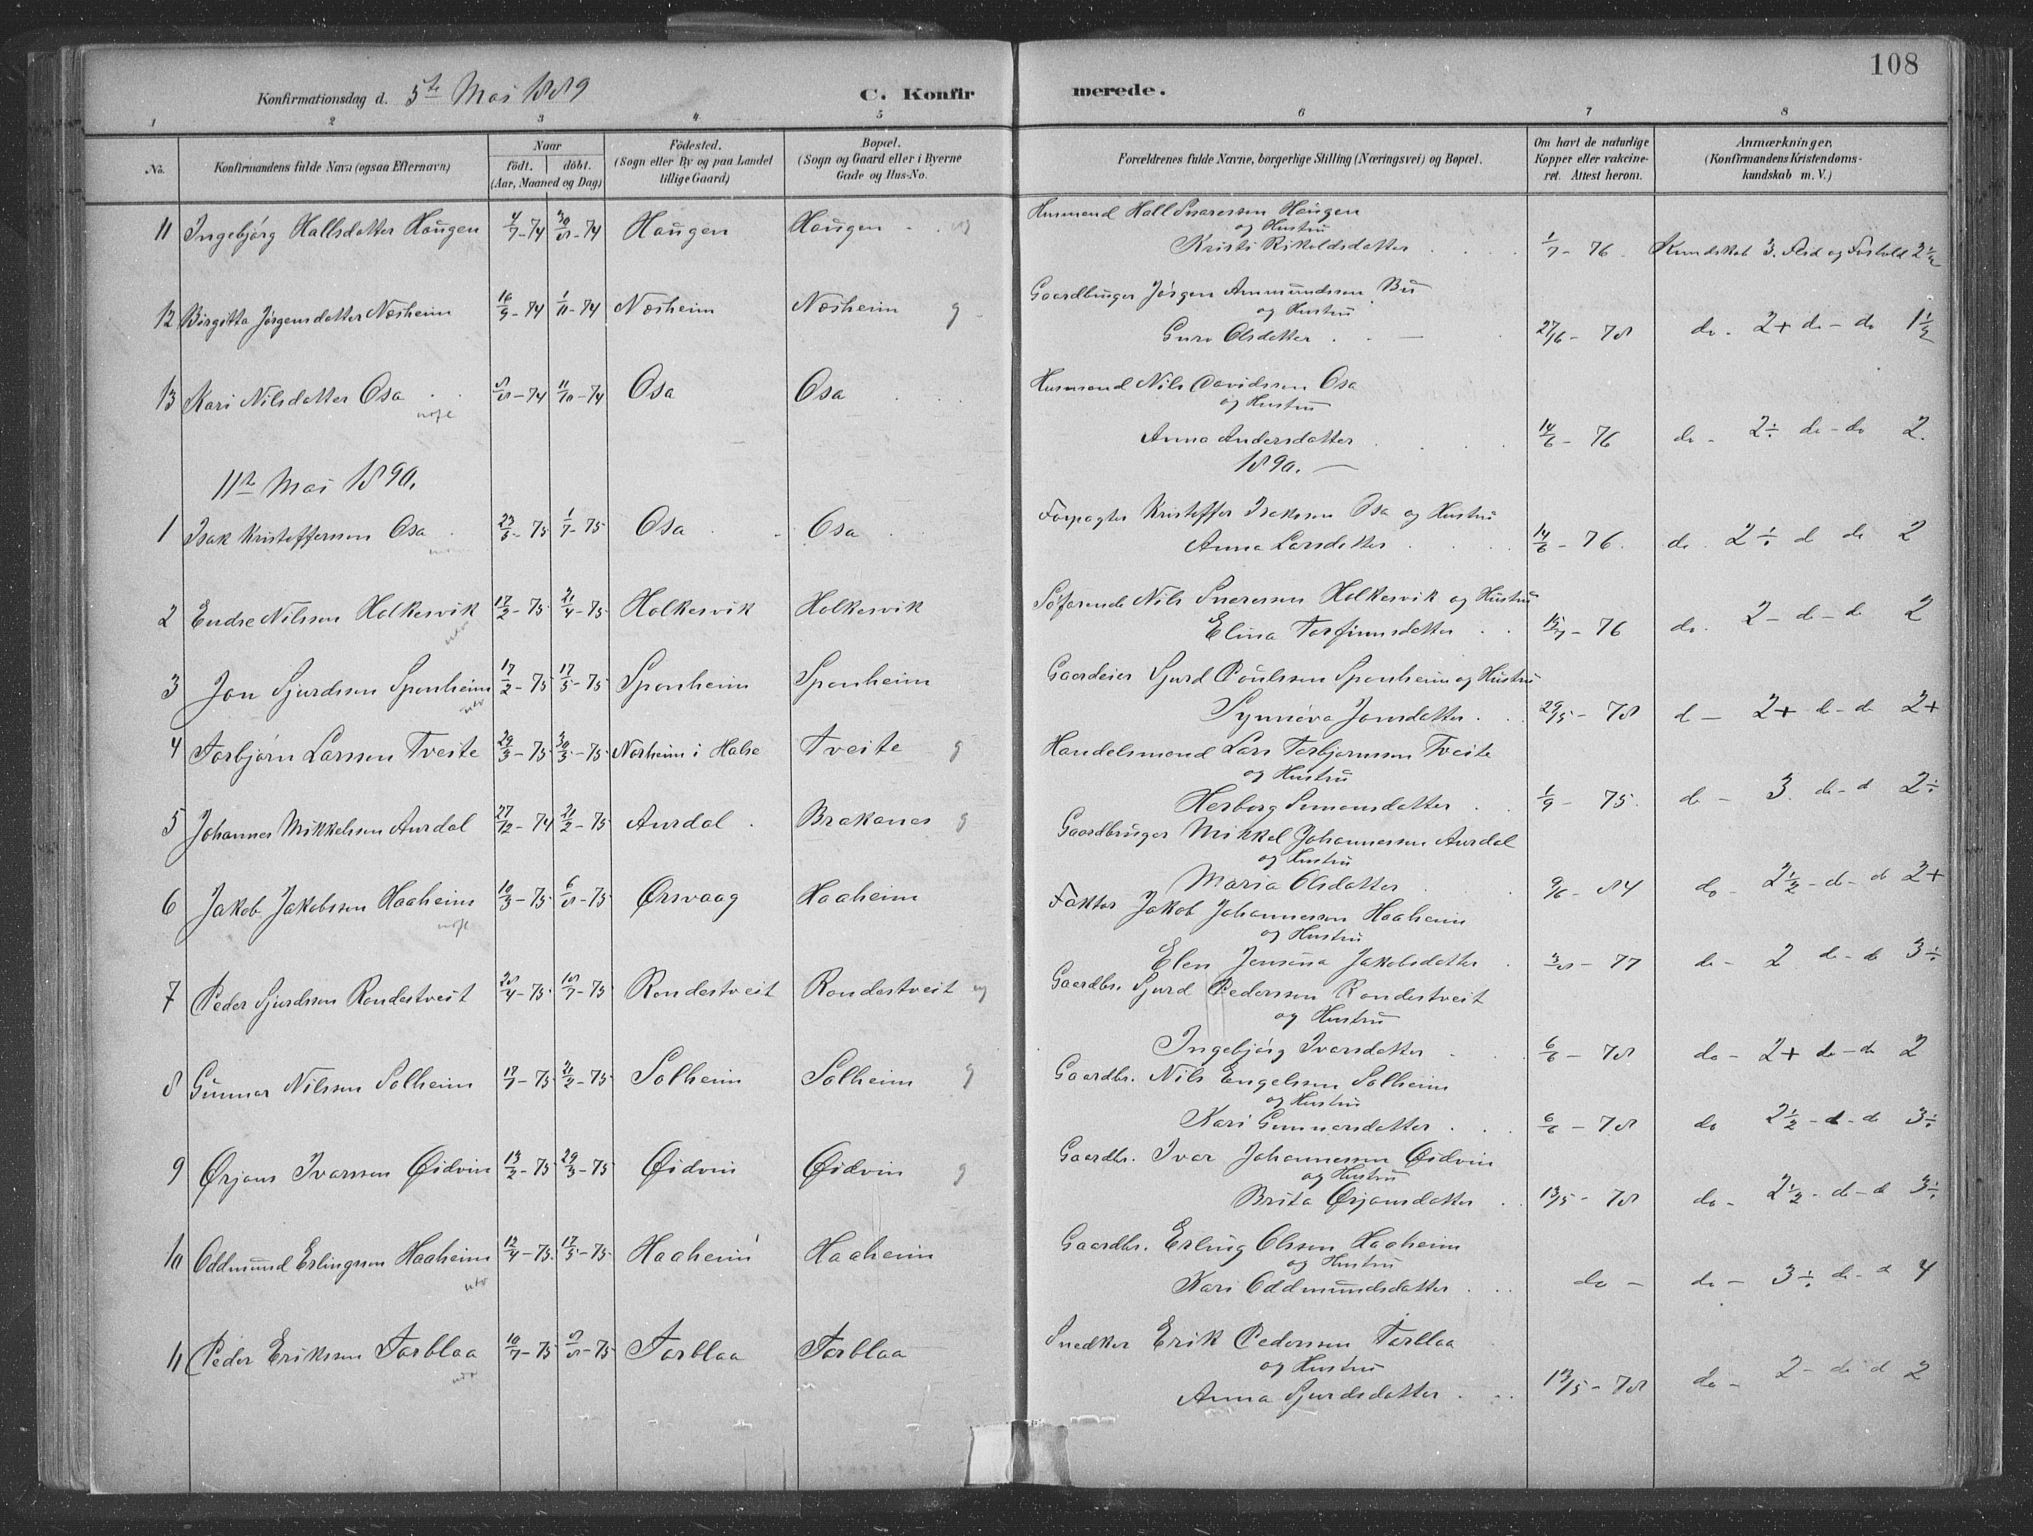 108
Konfirmationsdag d. 5te Mai 1889 C. Konfirmerede.
1 2 3 4 5 6 7 8
No. Konfirmandens fulde Navn (ogsaa Efternavn) Naar født. døbt. (Aar, Maaned og Dag) Fødested. (Sogn eller By og paa Landet tillige Gaard) Bopæl. (Sogn og Gaard eller i Byerne Gade og Hus-No. Forældrenes fulde Navne, borgerlige Stilling (Næringsvei) og Bopæl. Om havt de naturlige Kopper eller vakcineret. Attest herom. Anmærkninger, (Konfirmandens Kristendomskundskab m. V.)
Husmand Hall Sveressen Haugen
og Hustru
11 Ingebjørg Hallsdatter Haugen 4/7-74 30/8-74 Haugen Haugen Kristi Rikoldsdatter 1/7-76 Kundskab 3. Flid og Forhold 2 1/2
Gaardbruger Jørgen Ammundssen Bu
og Hustru
12 Birgitta Jørgensdatter Næsheim 16/9-74 1/11-74 Næsheim Næsheim g Guro Olsdatter 27/6-78 do. 2+ do-do 1 1/2
Husmand Nils Davidssen Osa
og Hustru
13 Kari Nilsdatter Osa 8/8-74 11/10-74 Osa Osa Anna Andersdatter 14/6-76 do- 2÷ do-do 2.
11te Mai 1890. 1890.
Forpagter Kristoffer Isakssen Osa og Hustru
1 Isak Kristofferssen Osa 23/5-75 1/7-75 Osa Osa Anna Larsdatter 14/6-76. do. 2÷ d do 2
Søfarende Nils Sveressen Holkesvik og Hustru
2 Endre Nilssen Holkesvik 17/2-75 21/4-75 Holkesvik Holkesvik Elina Torfinnsdatter 15/7-76 do. 2-do-do 2
Gaardeier Sjurd Poulssen Sponheim og Hustru
3 Jon Sjurdssen Sponheim 17/2-75 17/5-75 Sponheim Sponheim Synnøva Jonsdatter 29/5-78 d- 2+ do-do 2+
Handelsmand Lars Torbjørnssen Tveite
og Hustru
4 Torbjørn Larssen Tveite 29/3-75 30/3-75 Norheim i Halse Tveite g Herborg Simonsdatter 1/9-75. do- 3 do-d 2÷
Gaardbruger Mikkel Johannessen Aurdal
og Hustru
5 Johannes Mikkelssen Aurdal 27/12-74 21/2-75 Aurdal Brakanes g Maria Olsdatter 9/6-84 do- 2 1/2-do-do 2+
Faktor Jakob Johannessen Haaheim
og Hustru
6 Jakob Jakobssen Haaheim 10/3-75 6/8-75 Ørsvaag Haaheim Elen Jensina Jakobsdatter 3/8-77 do- 2 do-do 3÷
Gaardbr. Sjurd Pederssen Rondestveit
og Hustru
7 Peder Sjurdssen Rondestveit 28/4-75 18/7-75 Rondestveit Rondestveit Ingebjørg Ivarsdatter 6/6-78 do- 2+ do-do 2
Gaardbr. Nils Engelssen Solheim
og Hustru
8 Gunnar Nilssen Solheim 75 75 Solheim Solheim g Kari Gunnarsdatter 6/6-78 do 2 1/2-d-do 3÷
Gaardbr. Ivar Johannessen Øidvin
og Hustru
9 Ørjans Ivarssen Øidvin 13/2-75 29/3-75 Øidvin Øidvin g Brita Ørjansdatter 13/5-78 do- 2 1/2-do-d 3÷
Gaardbr. Erling Olssen Haaheim
og Hustru
10 Oddmund Erlingssen Haaheim 12/4-75. 17/5-75 Haaheim Haaheim Kari Oddmundsdatter do- do- 3÷ do-d 4
Snedker Erik Pederssen Torblaa
og Hustru
11 Peder Erikssen Torblaa 10/7-75 8/8-75 Torblaa Torblaa Anna Sjurdsdatter 13/5-78 do- 2-do d 2